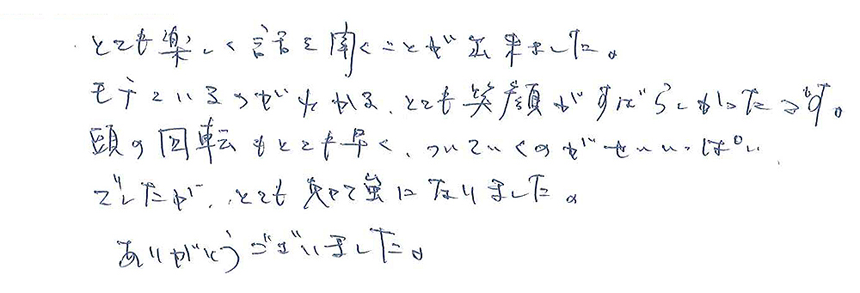 ・とても楽しく話を聞くことが出来ました。
モテているのがわかる、とても笑顔がすばらしかったです。
頭の回転もとても早く、ついていくのがせいいっぱい
でしたが、とても になりました。
ありがとうございました。